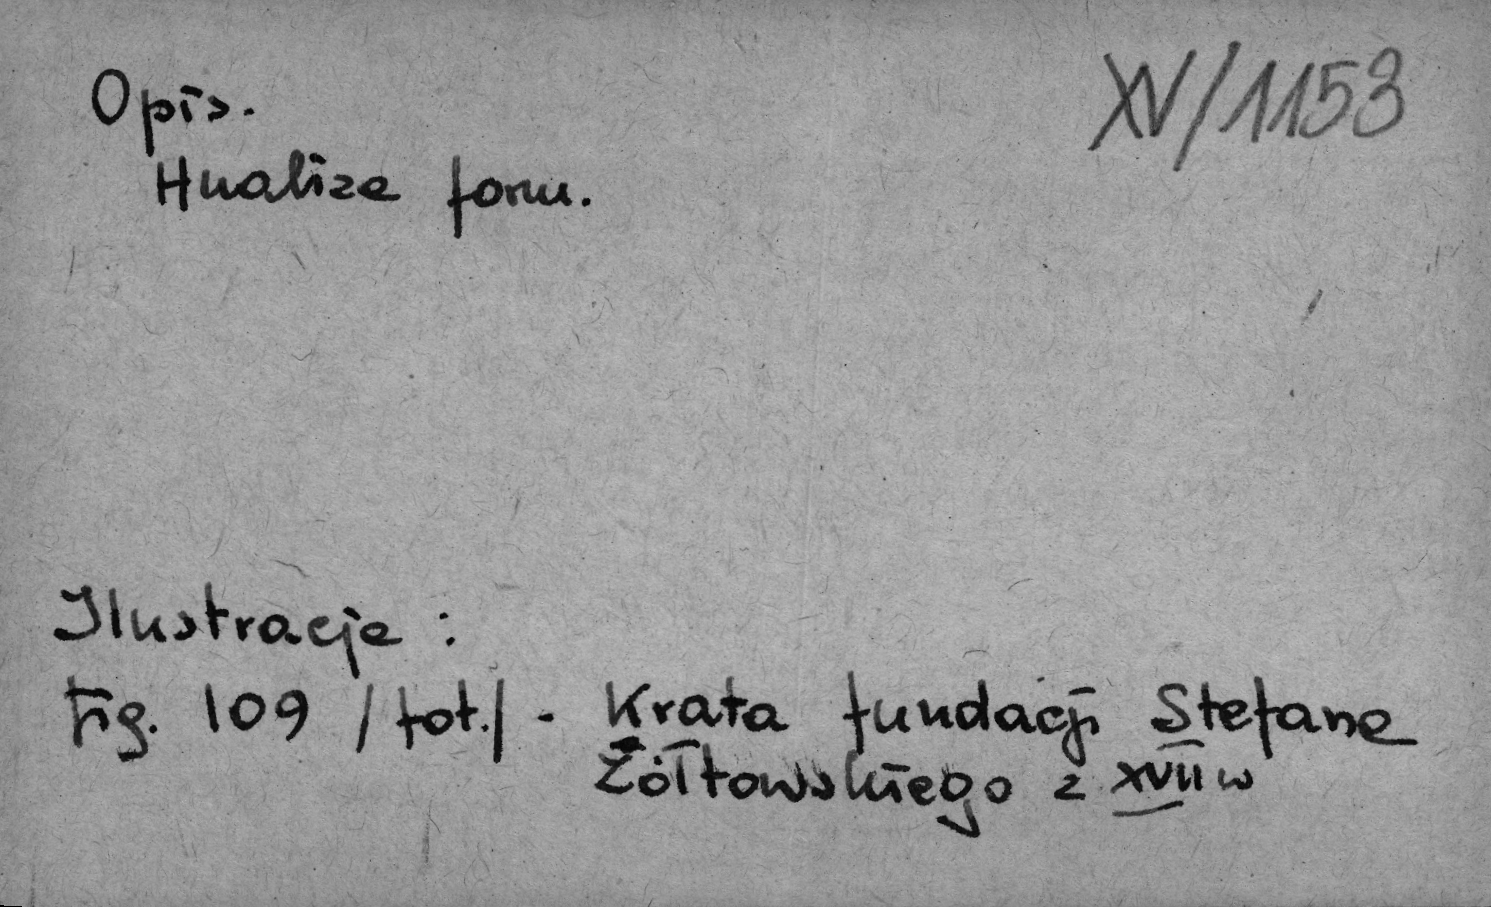 XV/1153
Opis.
Analiza form.
Ilustracje :
Fig. 109 /fot./ - Krata fundacji Stefana
Żółtowskiego z XVII w